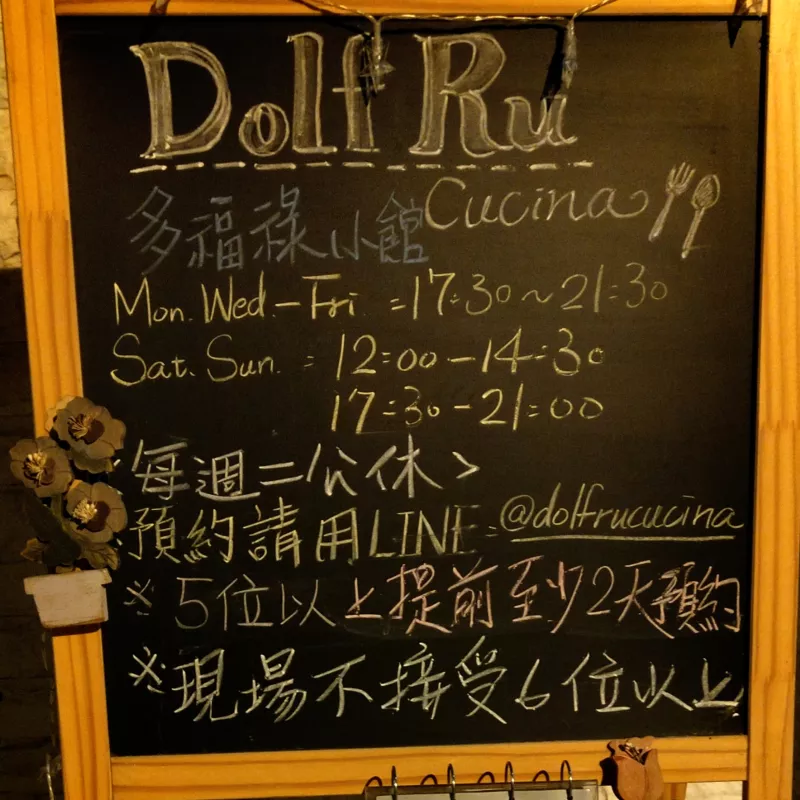 Dolf Ru
多福祿小館 Cucina
Mon. Wed. - Fri. = 17:30 ~ 21:30
Sat. Sun. = 12:00 - 14:30
17:30 - 21:00
每週二公休>
預約請用LINE: @dolfrucucina
※ 5位以上提前至少2天預約
※ 現場不接受6位以上